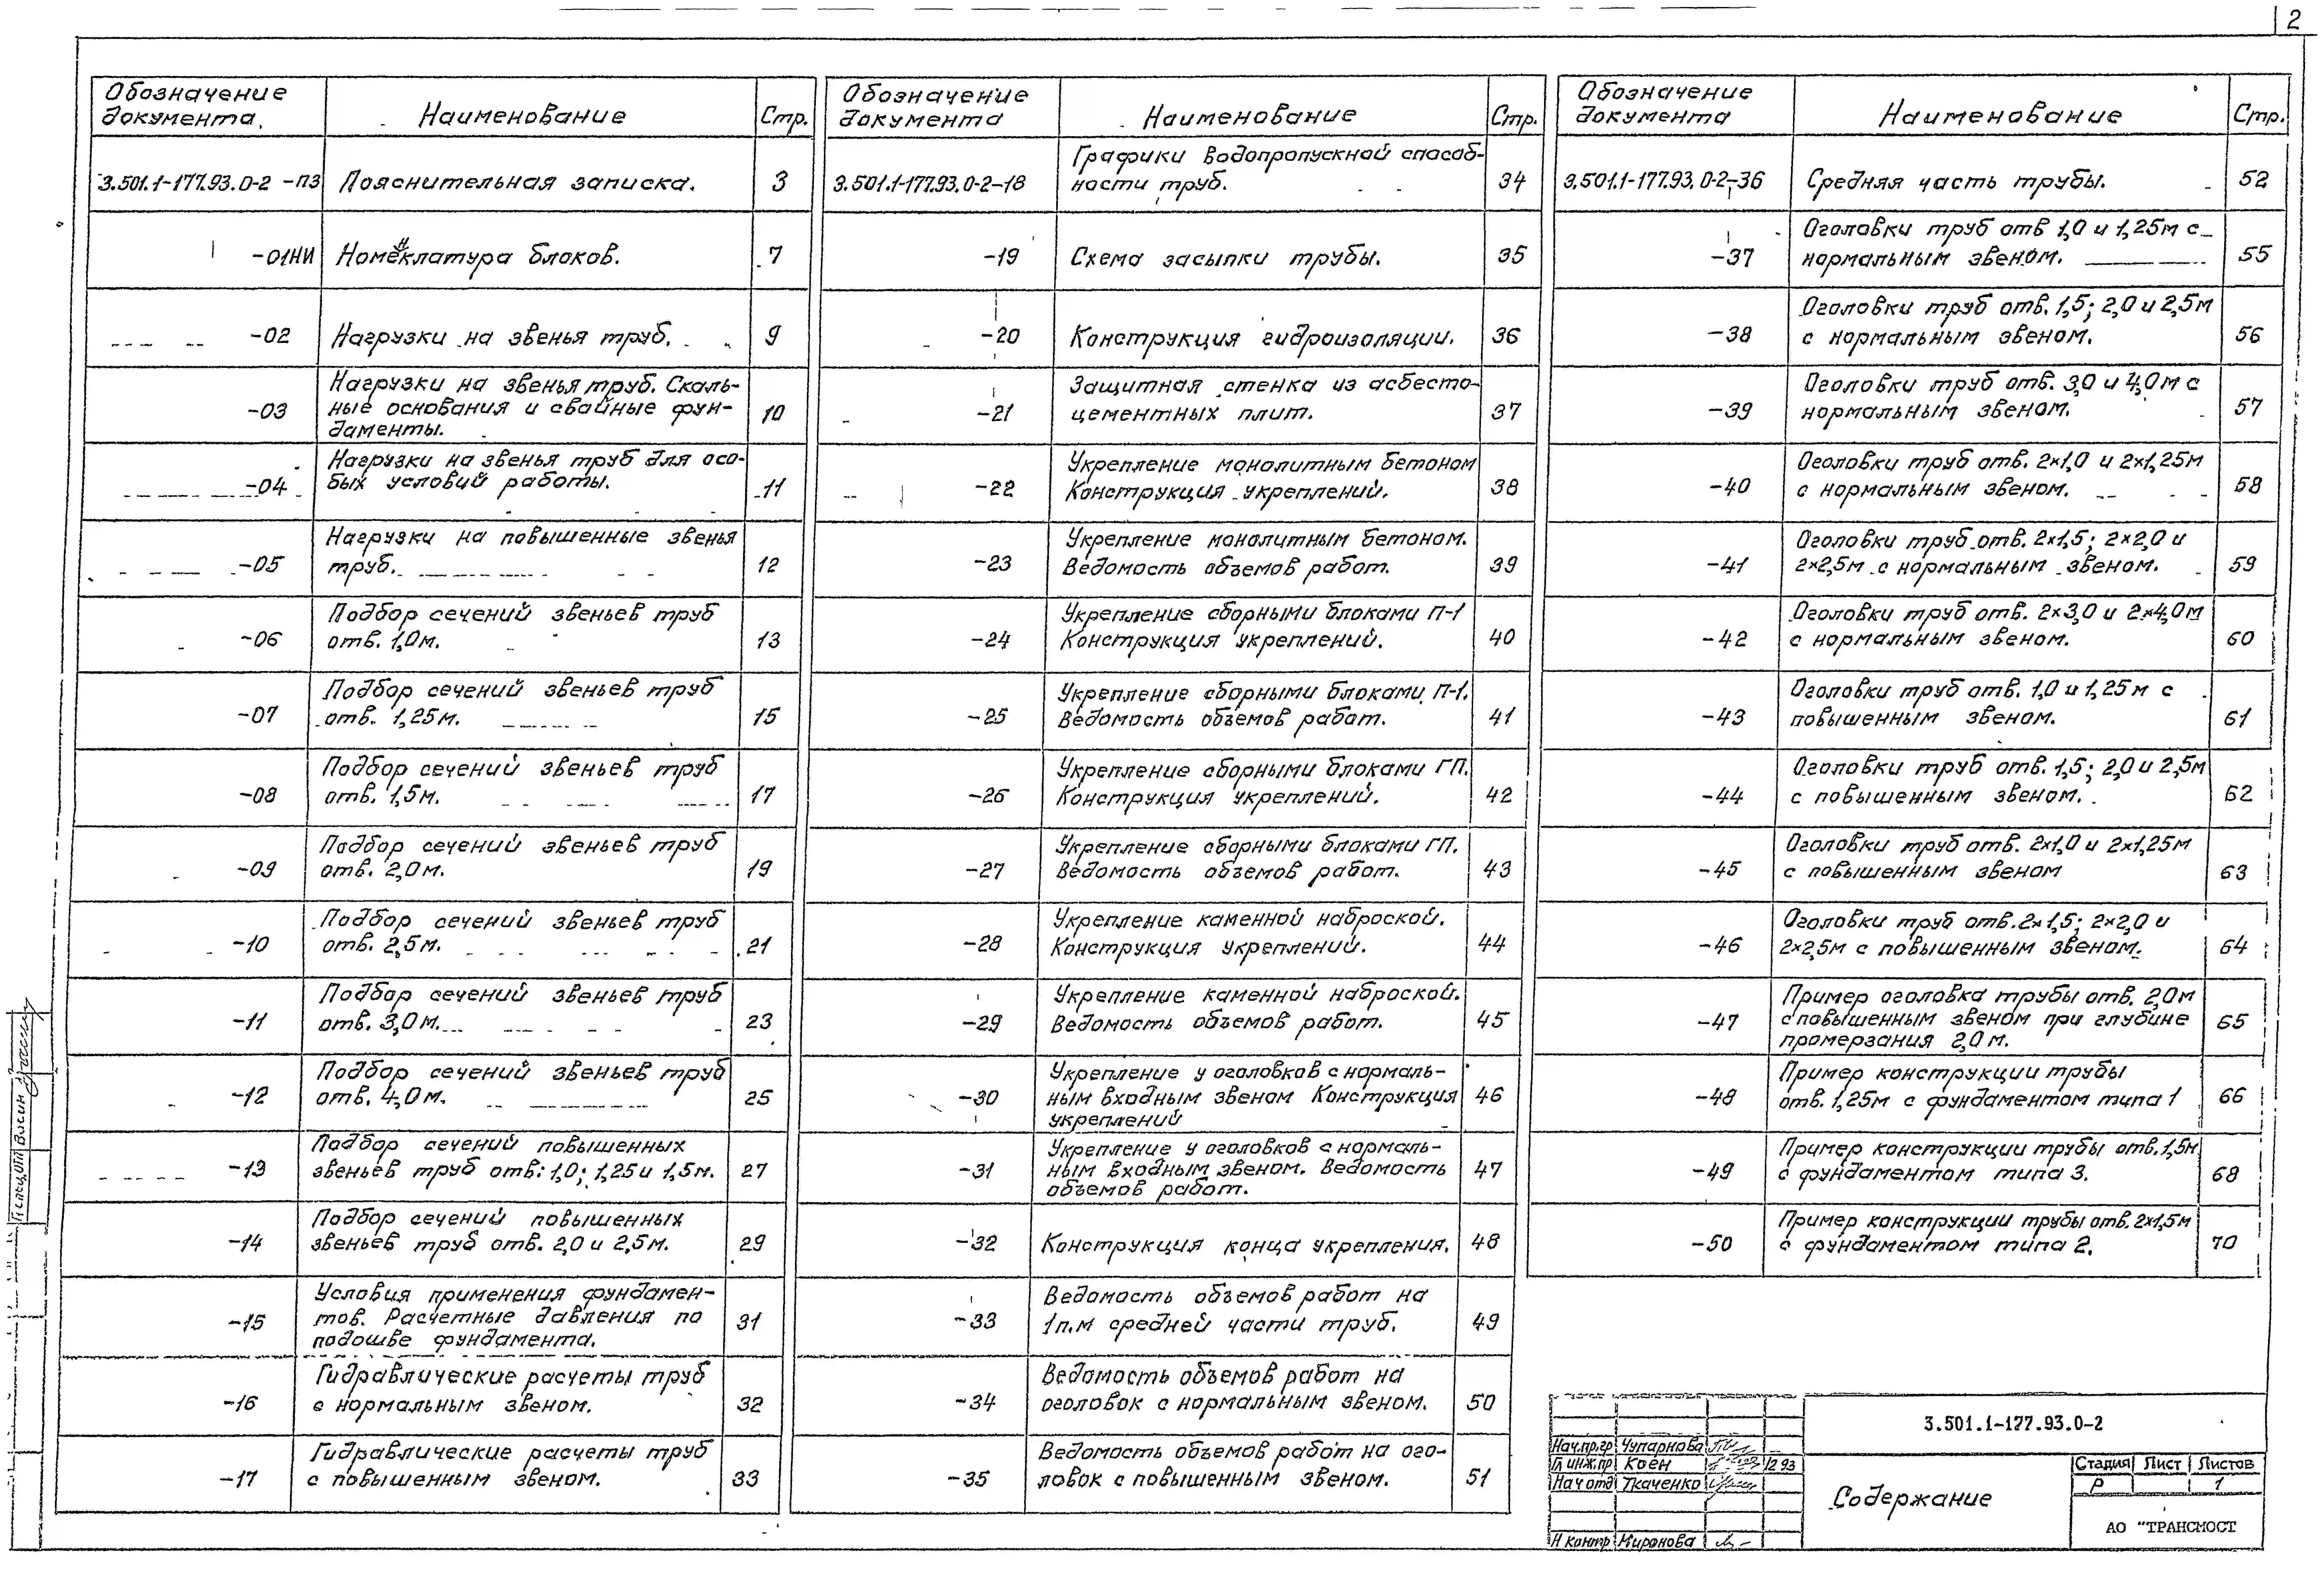 2
Обозначение
документа.
Наименование
Стр.
3.501.1-177.93.0-2 -ПЗ
Пояснительная записка.
3
-01НИ
Номенклатура блоков.
7
-02
Нагрузки на звенья труб.
9
-03
Нагрузки на звенья труб. Скаль-
ные основания и свайные фун-
даменты.
10
-04
Нагрузки на звенья труб для осо-
бых условий работы.
11
-05
Нагрузки на повышенные звенья
труб.
12
-06
Подбор сечений звеньев труб
отв. 1,0м.
13
-07
Подбор сечений звеньев труб
отв. 1,25м.
15
-08
Подбор сечений звеньев труб
отв. 1,5м.
17
-09
Подбор сечений звеньев труб
отв. 2,0м.
19
-10
Подбор сечений звеньев труб
отв. 2,5м.
21
-11
Подбор сечений звеньев труб
отв. 3,0м.
23
-12
Подбор сечений звеньев труб
отв. 4,0м.
25
-13
Подбор сечений повышенных
звеньев труб отв: 1,0; 1,25 и 1,5м.
27
-14
Подбор сечений повышенных
звеньев труб отв. 2,0 и 2,5м.
29
-15
Условия применения фундамен-
тов. Расчетные давления по
подошве фундамента.
31
-16
Гидравлические расчеты труб
с нормальным звеном.
32
-17
Гидравлические расчеты труб
с повышенным звеном.
33
Обозначение
документа
Наименование
Стр.
3.501.1-177.93.0-2-18
Графики водопропускной способ-
ности труб.
34
-19
Схема засыпки трубы.
35
-20
Конструкция гидроизоляции.
36
-21
Защитная стенка из асбесто-
цементных плит.
37
-22
Укрепление монолитным бетоном
Конструкция укреплений.
38
-23
Укрепление монолитным бетоном.
Ведомость объемов работ.
39
-24
Укрепление сборными блоками П-1
Конструкция укреплений.
40
-25
Укрепление сборными блоками П-1.
Ведомость объемов работ.
41
-26
Укрепление сборными блоками ГП.
Конструкция укреплений.
42
-27
Укрепление сборными блоками ГП.
Ведомость объемов работ.
43
-28
Укрепление каменной наброской.
Конструкция укреплений.
44
-29
Укрепление каменной наброской.
Ведомость объемов работ.
45
-30
Укрепление у оголовков с нормаль-
ным входным звеном Конструкция
укреплений
46
-31
Укрепление у оголовков с нормаль-
ным входным звеном. Ведомость
объемов работ.
47
-32
Конструкция конца укрепления.
48
-33
Ведомость объемов работ на
1п.м средней части труб.
49
-34
Ведомость объемов работ на
оголовок с нормальным звеном.
50
-35
Ведомость объемов работ на ого-
ловок с повышенным звеном.
51
Обозначение
документа
Наименование
Стр.
3.501.1-177.93.0-2-36
Средняя часть трубы.
52
-37
Оголовки труб отв 1,0 и 1,25м с
нормальным звеном.
55
-38
Оголовки труб отв. 1,5; 2,0 и 2,5м
с нормальным звеном.
56
-39
Оголовки труб отв. 3,0 и 4,0м с
нормальным звеном.
57
-40
Оголовки труб отв. 2×1,0 и 2×1,25м
с нормальным звеном.
58
-41
Оголовки труб отв. 2×1,5; 2×2,0 и
2×2,5м с нормальным звеном.
59
-42
Оголовки труб отв. 2×3,0 и 2×4,0м
с нормальным звеном.
60
-43
Оголовки труб отв. 1,0 и 1,25м с
повышенным звеном.
61
-44
Оголовки труб отв. 1,5; 2,0 и 2,5м
с повышенным звеном.
62
-45
Оголовки труб отв. 2×1,0 и 2×1,25м
с повышенным звеном
63
-46
Оголовки труб отв. 2×1,5; 2×2,0 и
2×2,5м с повышенным звеном.
64
-47
Пример оголовка трубы отв. 2,0м
с повышенным звеном при глубине
промерзания 2,0м.
65
-48
Пример конструкции трубы
отв. 1,25м с фундаментом типа 1
66
-49
Пример конструкции трубы отв. 1,5м
с фундаментом типа 3.
68
-50
Пример конструкции трубы отв. 2×1,5м
с фундаментом типа 2.
70
3.501.1-177.93.0-2
Нач.пр.гр Чупарнова
Гл инж.пр Коен 12 93
Нач отд Ткаченко
Н контр Миронова
Содержание
Стадия Лист Листов
Р 1
АО "ТРАНСМОСТ